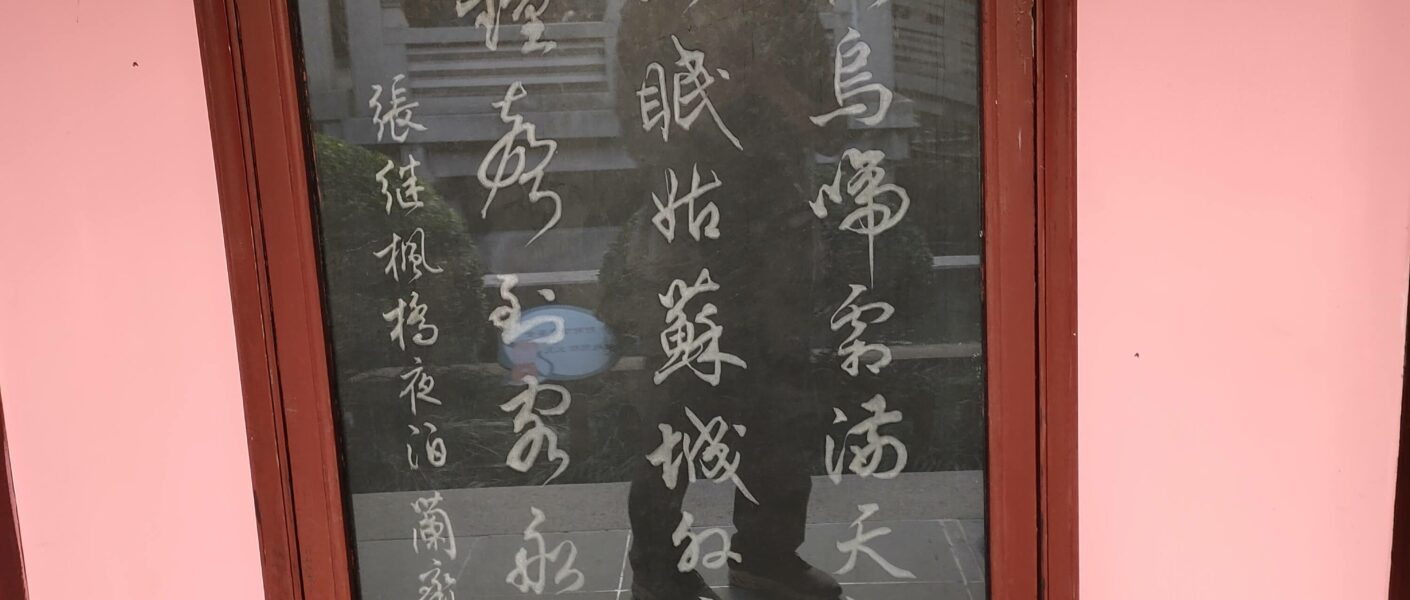 烏啼霜滿天
眠姑蘇城外
鐘聲到客船
張继楓橋夜泊蘭